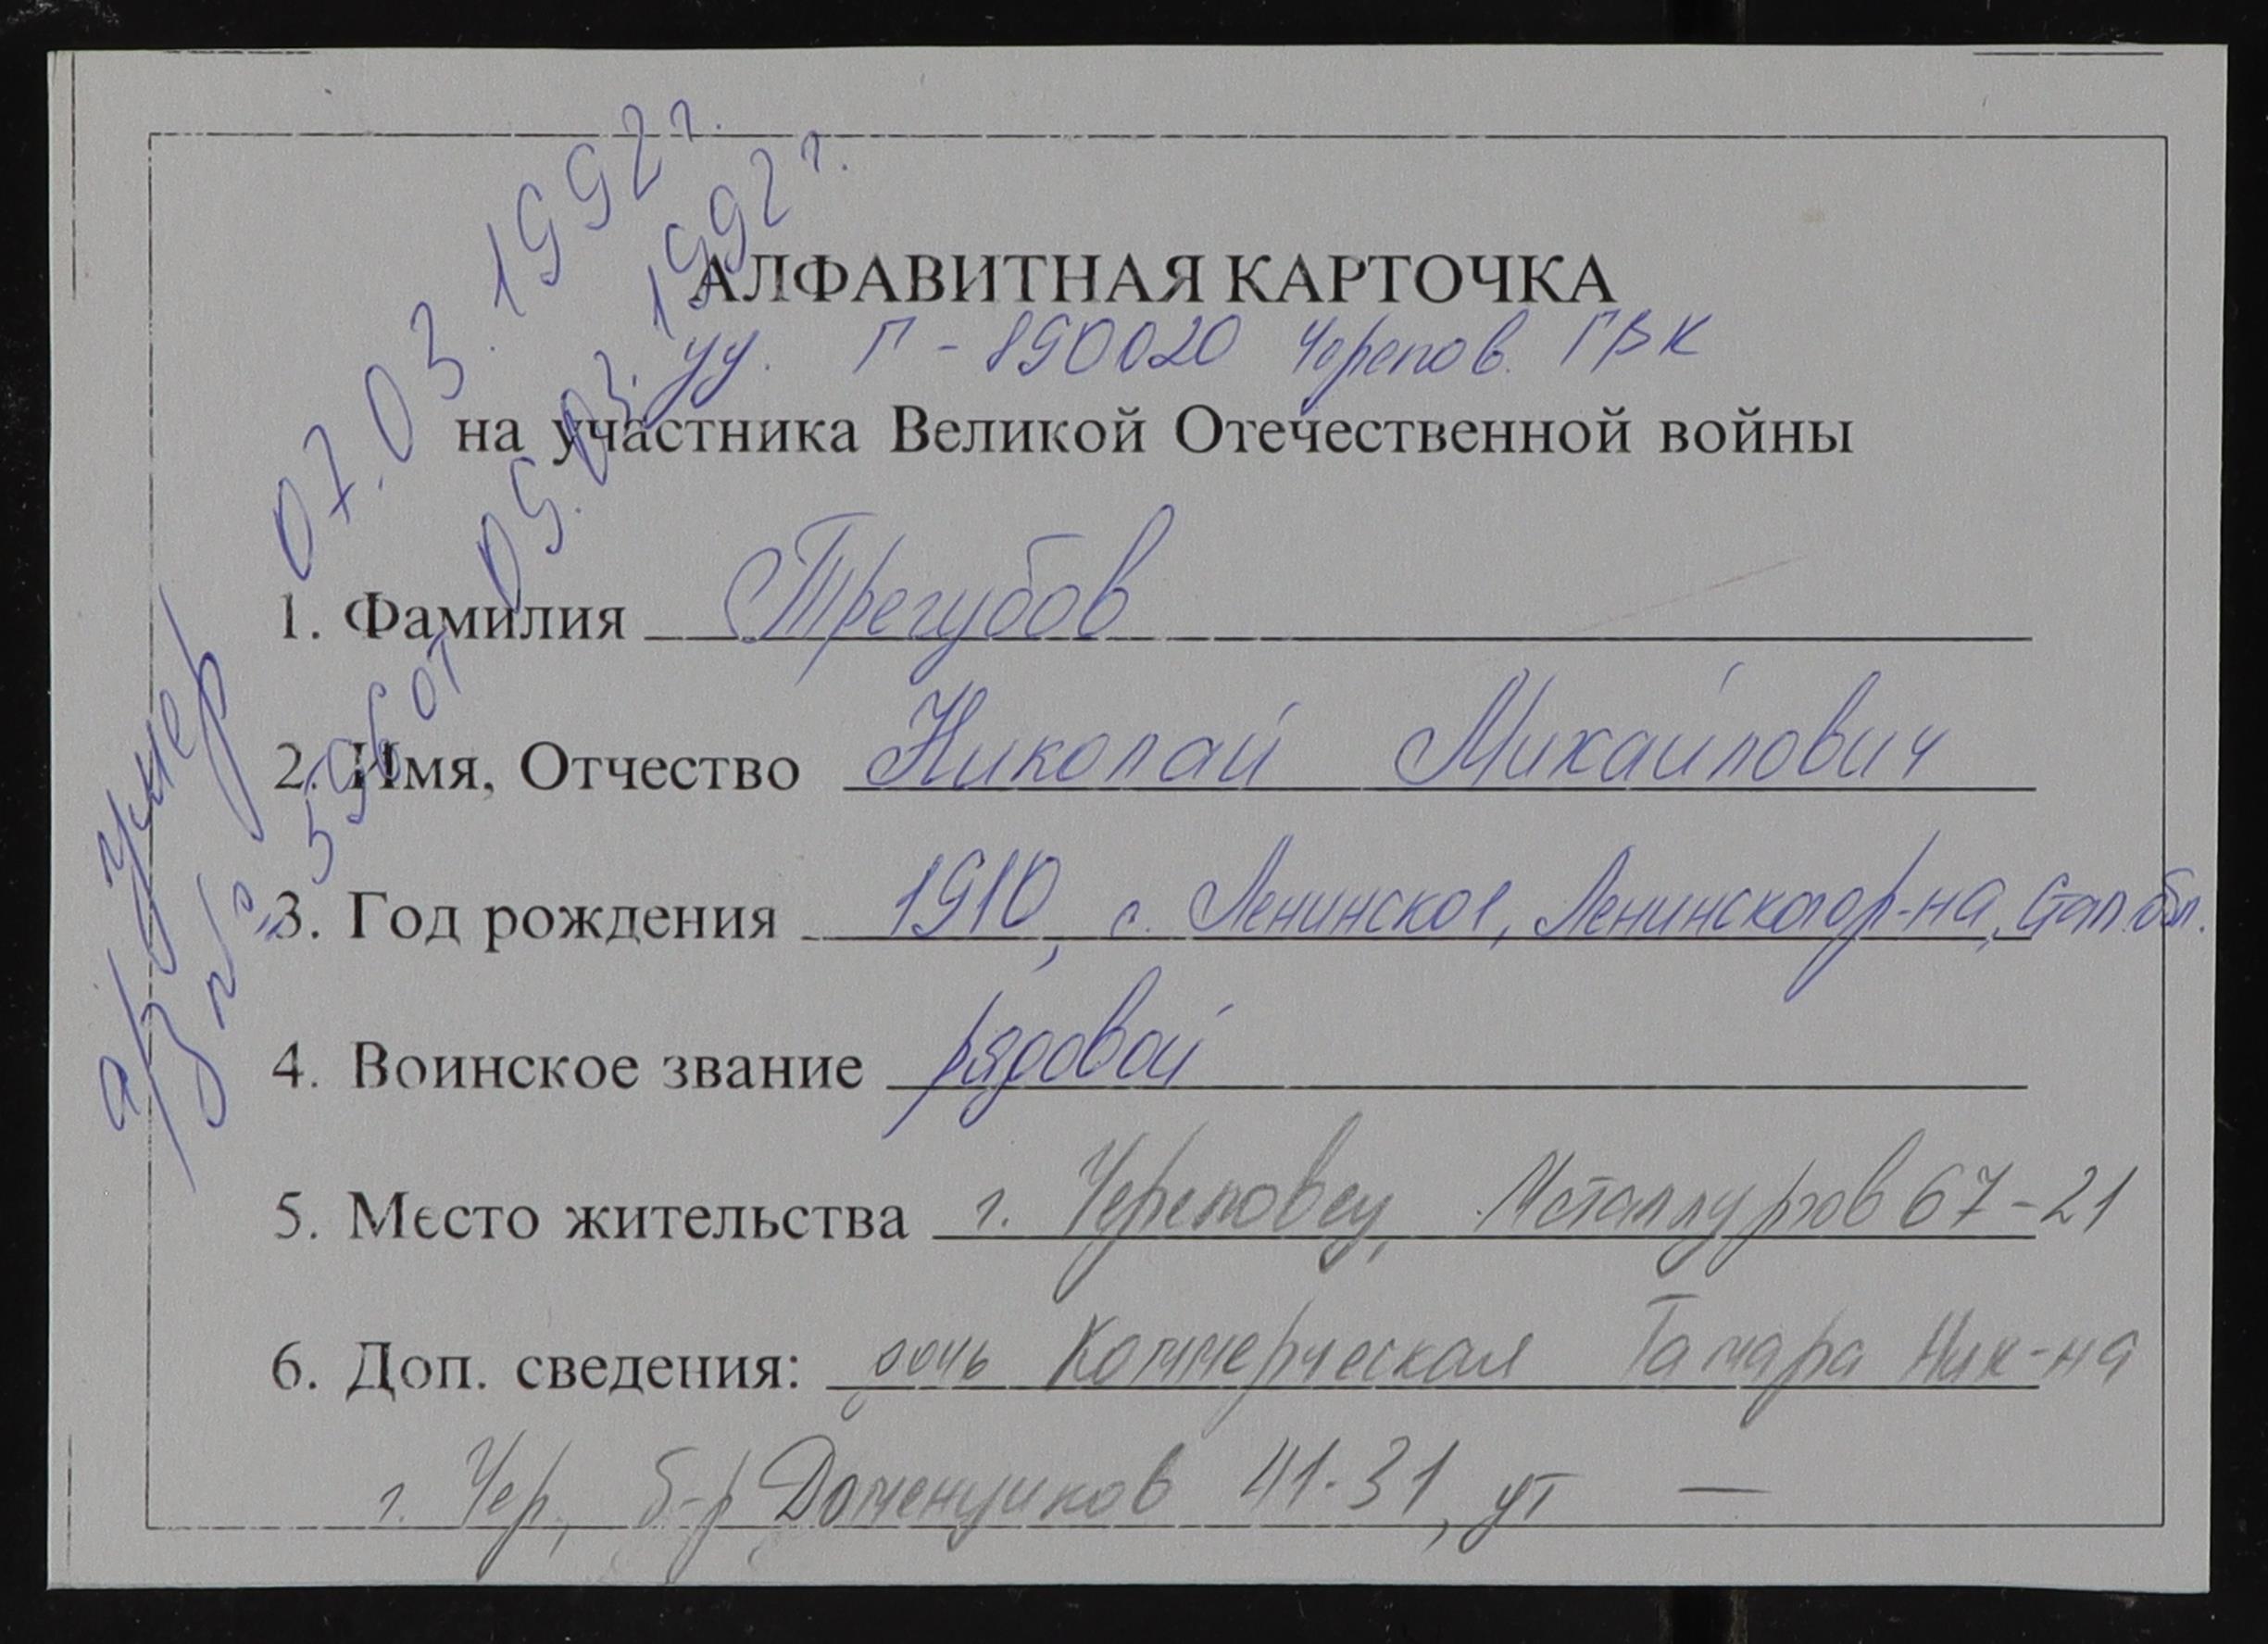 АЛФАВИТНАЯ КАРТОЧКА
уу. Г-890020 Черепов. ГВК
на участника Великой Отечественной войны
1. Фамилия Трегубов
2. Имя, Отчество Николай Михайлович
3. Год рождения 1910, с. Ленинское, Ленинского р-на, Стал. обл.
4. Воинское звание рядовой
5. Место жительства г. Череповец, Металлургов 67-21
6. Доп. сведения: дочь Коммерческая Тамара Ник-на
г. Чер, б-р Доменщиков 41-31, ут —
умер 07.03.1992 г.
а/з № 596 от 09.03.1992 г.